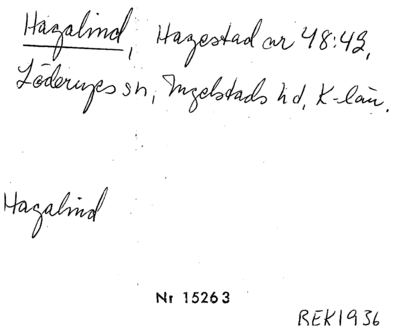 Hagalind, Hagestad ar 48:42,
Löderups sn, Ingelstads hd, K-län.
Hagalind
Nr 15263
REK1936